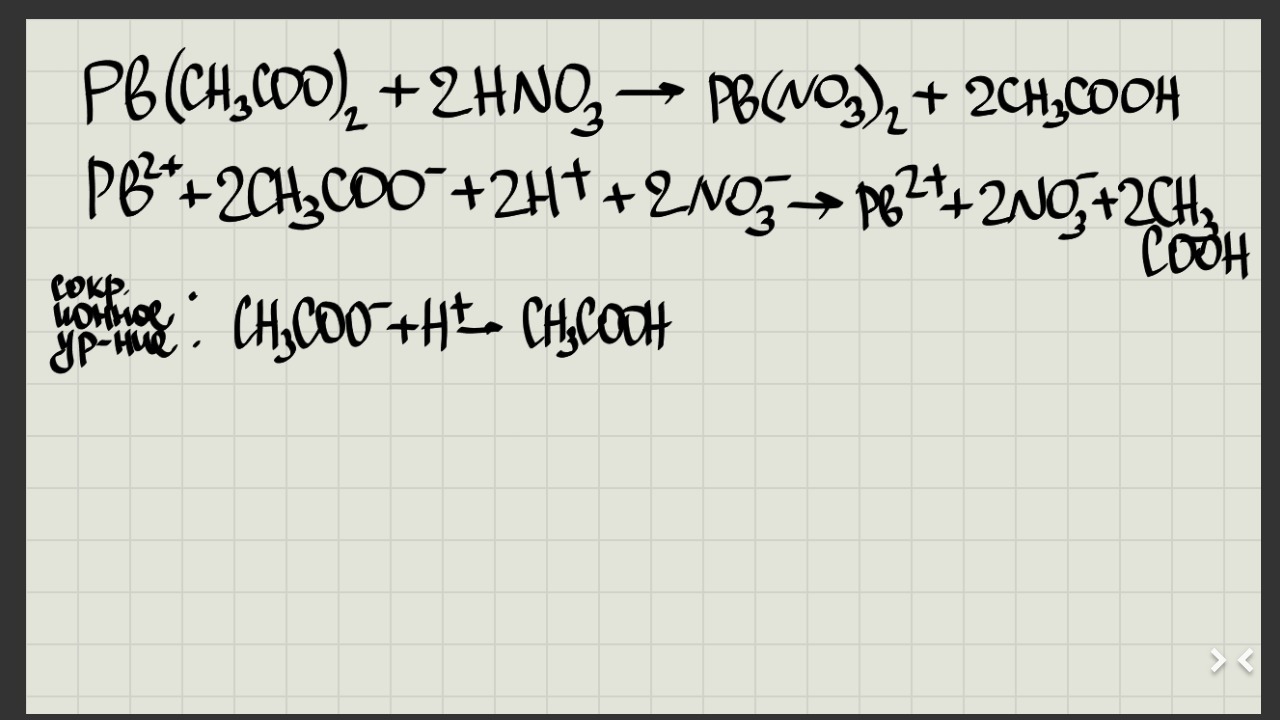 PB(CH₃COO)₂ + 2HNO₃ → PB(NO₃)₂ + 2CH₃COOH
PB²⁺ + 2CH₃COO⁻ + 2H⁺ + 2NO₃⁻ → PB²⁺ + 2NO₃⁻ + 2CH₃
COOH
сокр.
ионное
ур-ние : CH₃COO⁻ + H⁺ → CH₃COOH